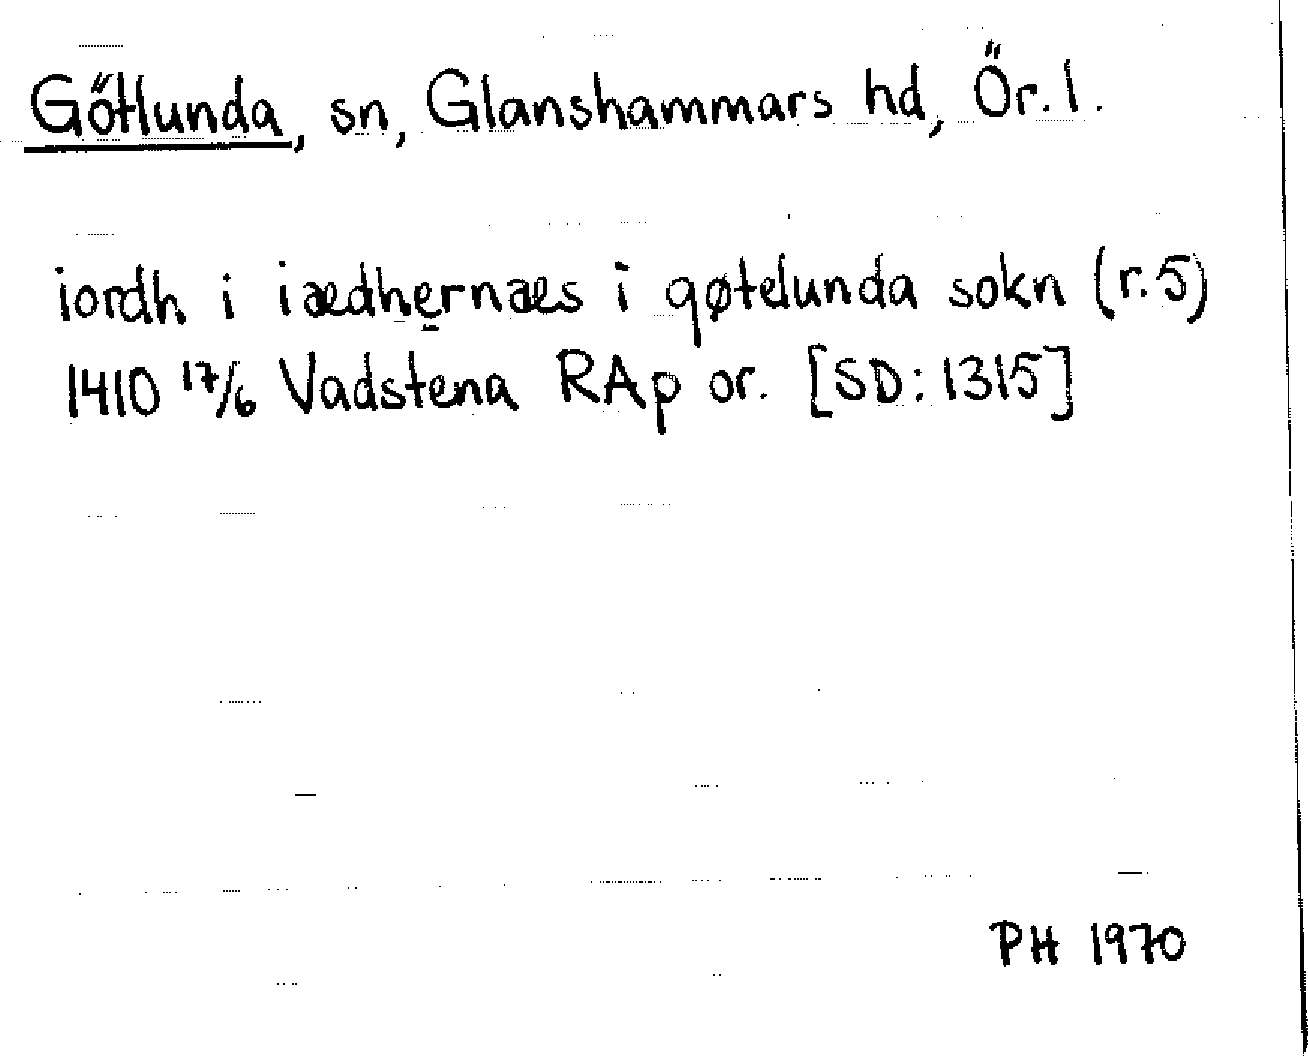 Götlunda, sn, Glanshammars hd, Ör. l.
iordh i iædhernæs i gøtelunda sokn (r. 5)
1410 17/6 Vadstena RAp or. [SD: 1315]
PH 1970